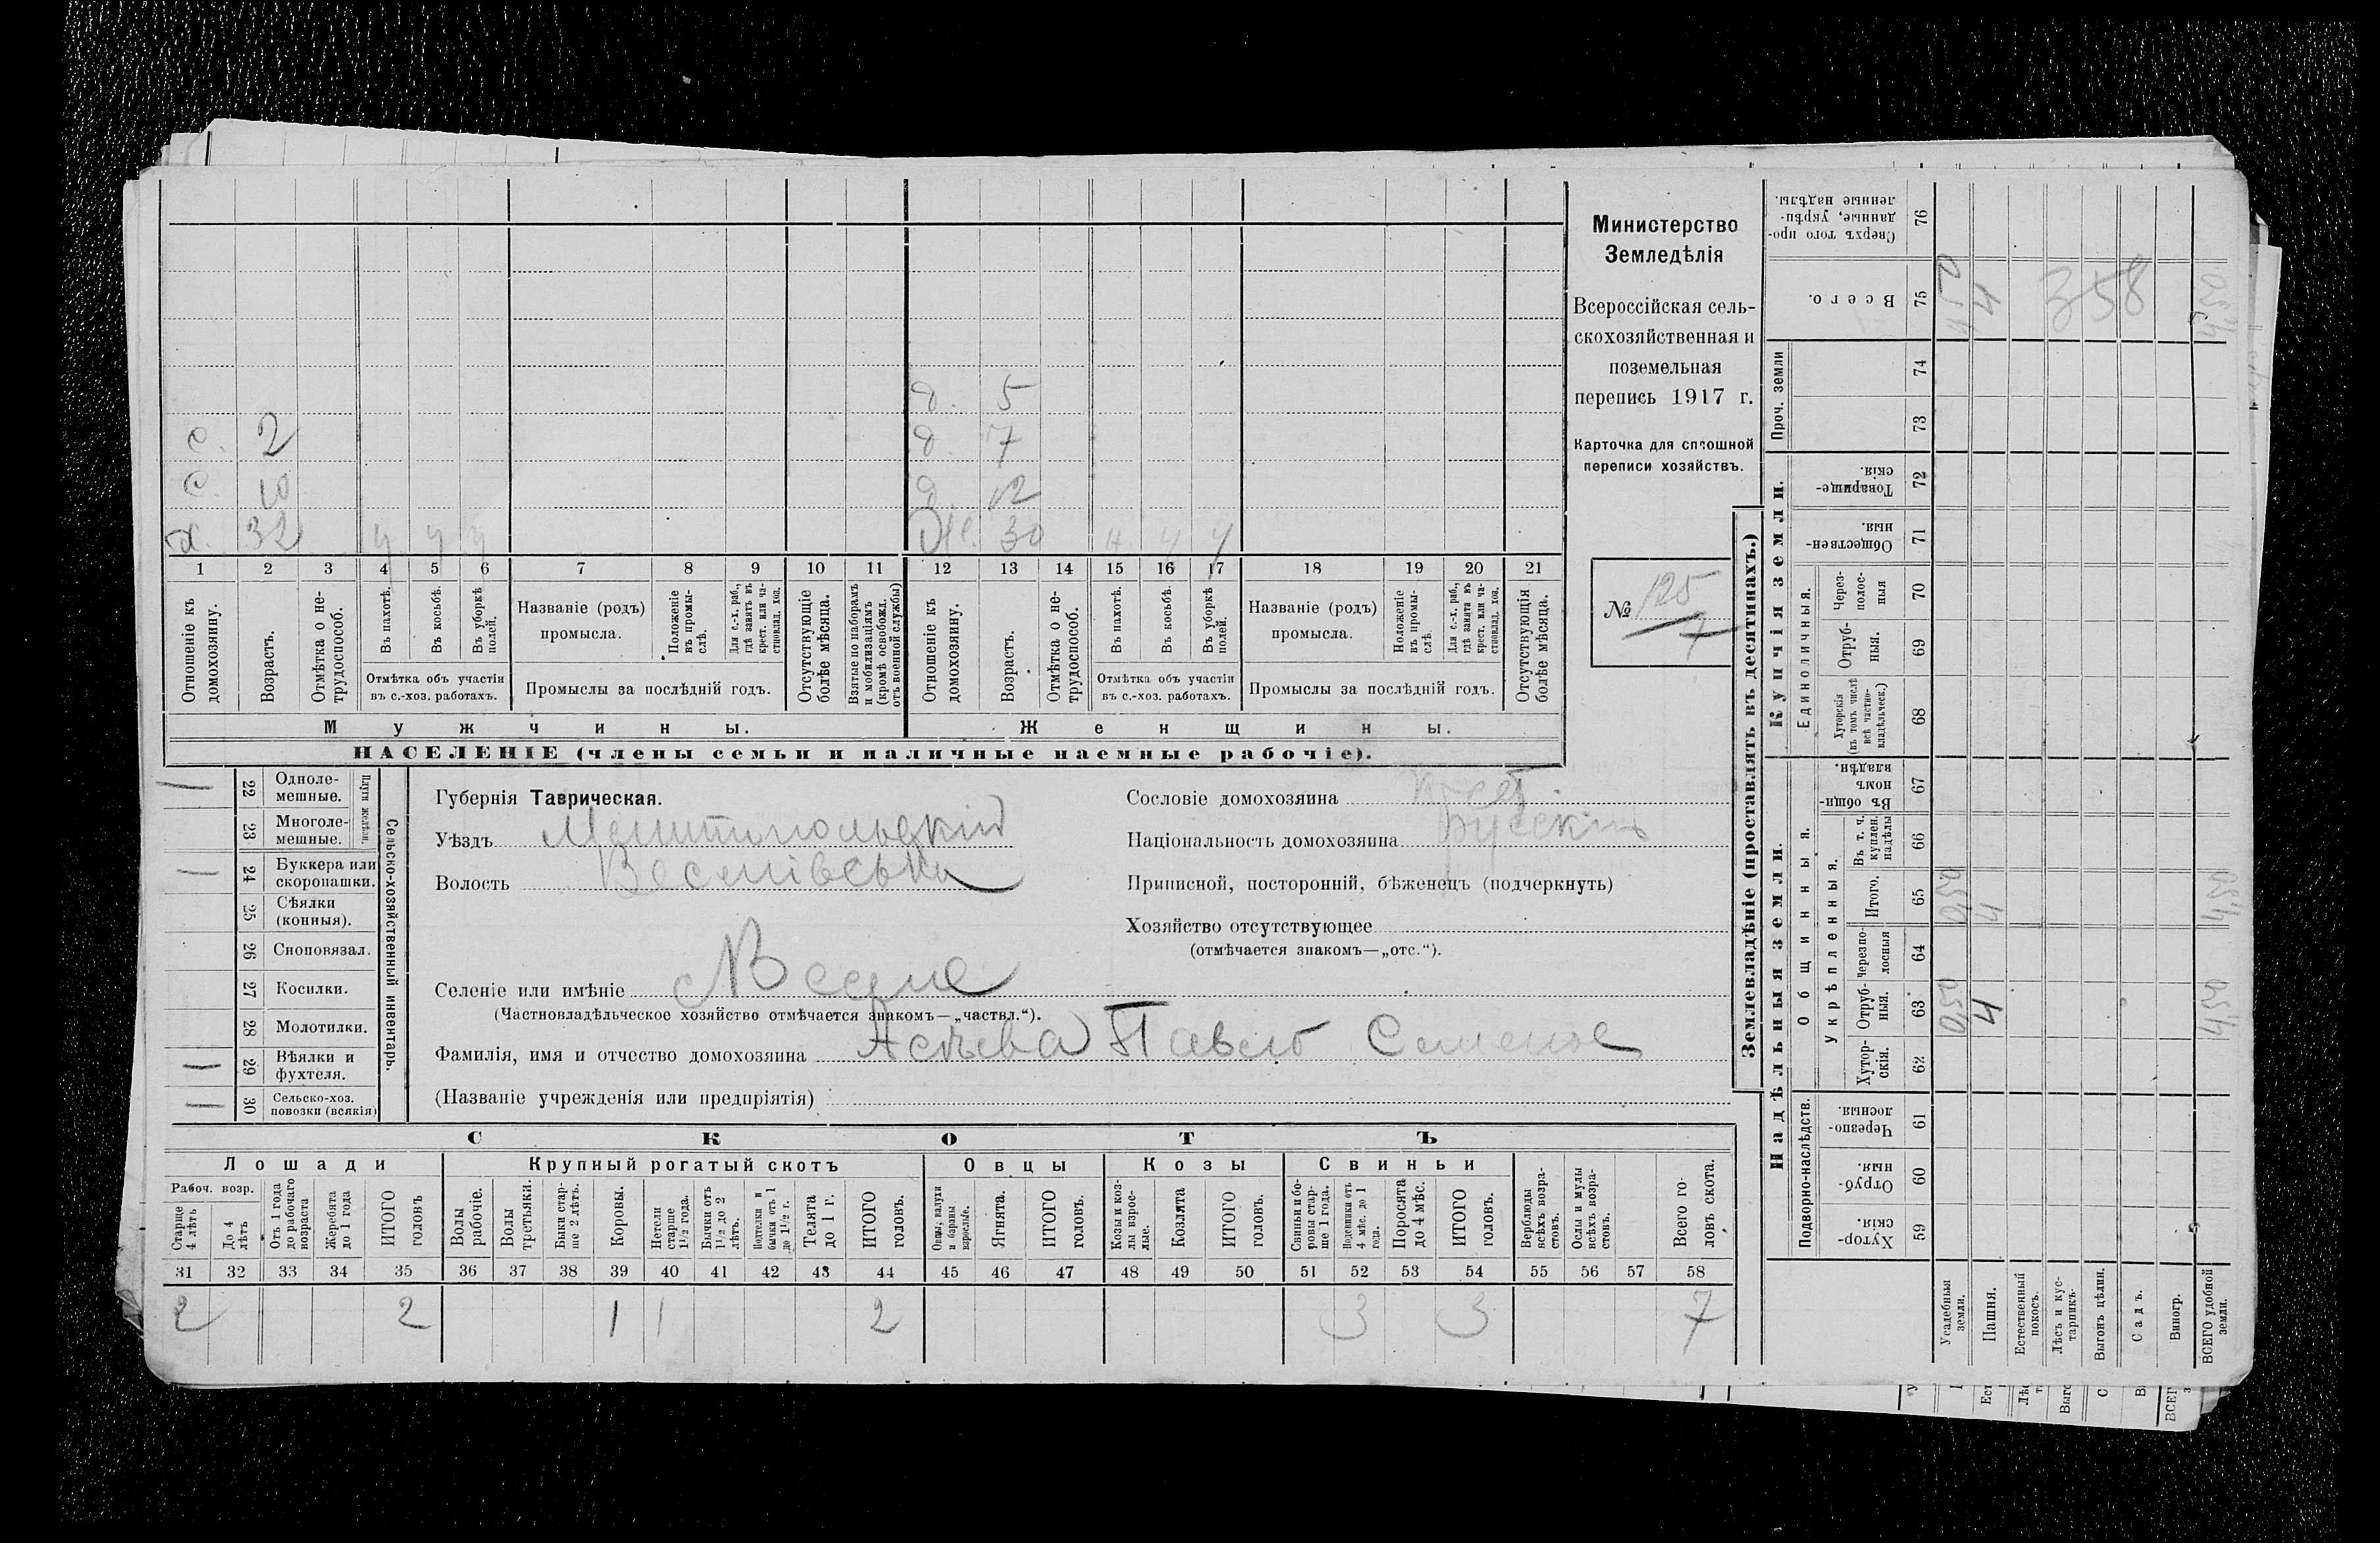 Министерство
Земледѣлія
Всероссійская сель-
скохозяйственная и
поземельная
перепись 1917 г.
Карточка для сплошной
переписи хозяйствъ.
№ 125
7
д. 5
с. 2 д. 7
с. 10 д. 12
х. 32 ч ч ч ж. 30 ч ч ч
1 2 3 4 5 6 7 8 9 10 11 12 13 14 15 16 17 18 19 20 21
Отношеніе къ домохозяину.
Возрастъ.
Отмѣтка о не-трудоспособ.
Въ пахотѣ.
Въ косьбѣ.
Въ уборкѣ полей.
Отмѣтка объ участіи
въ с.-хоз. работахъ.
Названіе (родъ)
промысла.
Положеніе въ промы-слѣ.
Для с.-х. раб., гдѣ занятъ въ крест. или ча-стновлад. хоз.
Промыслы за послѣдній годъ.
Отсутствующіе болѣе мѣсяца.
Взятые по наборамъ и мобилизаціямъ (кромѣ освобожд. отъ военной службы)
Отношеніе къ домохозяину.
Возрастъ.
Отмѣтка о не-трудоспособ.
Въ пахотѣ.
Въ косьбѣ.
Въ уборкѣ полей.
Отмѣтка объ участіи
въ с.-хоз. работахъ.
Названіе (родъ)
промысла.
Положеніе въ промы-слѣ.
Для с.-х. раб., гдѣ занята въ крест. или ча-стновлад. хоз.
Промыслы за послѣдній годъ.
Отсутствующія болѣе мѣсяца.
Мужчины. Женщины.
НАСЕЛЕНІЕ (члены семьи и наличные наемные рабочіе).
Сельско-хозяйственный инвентарь.
Плуги желѣзн.
— 22 Одноле-мешные.
23 Многоле-мешные.
— 24 Буккера или скоропашки.
25 Сѣялки (конныя).
26 Сноповязал.
27 Косилки.
28 Молотилки.
— 29 Вѣялки и фухтеля.
— 30 Сельско-хоз. повозки (всякія)
Губернія Таврическая.
Уѣздъ Мелитопольскій
Волость Веселівська
Селеніе или имѣніе
(Частновладѣльческое хозяйство отмѣчается знакомъ—„частвл.“).
Фамилія, имя и отчество домохозяина Павелъ
(Названіе учрежденія или предпріятія)
Сословіе домохозяина
Національность домохозяина Русскій
Приписной, посторонній, бѣженецъ (подчеркнуть)
Хозяйство отсутствующее
(отмѣчается знакомъ—„отс.“).
СКОТЪ
Лошади Крупный рогатый скотъ Овцы Козы Свиньи
Рабоч. возр.
Старше 4 лѣтъ
До 4 лѣтъ
Отъ 1 года до рабочаго возраста
Жеребята до 1 года
ИТОГО головъ
Волы рабочіе.
Волы третьяки.
Быки стар-ше 2 лѣтъ.
Коровы.
Нетели старше 1½ года.
Бычки отъ 1½ до 2 лѣтъ.
Подтелки и бычки отъ 1 до 1½ г.
Телята до 1 г.
ИТОГО головъ.
Овцы, валухи и бараны взрослые.
Ягнята.
ИТОГО головъ.
Козы и коз-лы взрос-лые.
Козлята
ИТОГО головъ.
Свиньи и бо-ровы стар-ше 1 года.
Подсвинки отъ 4 мѣс. до 1 года.
Поросята до 4 мѣс.
ИТОГО головъ.
Верблюды всѣхъ возра-стовъ.
Ослы и мулы всѣхъ возра-стовъ.
Всего го-ловъ скота.
31 32 33 34 35 36 37 38 39 40 41 42 43 44 45 46 47 48 49 50 51 52 53 54 55 56 57 58
2 2 1 1 2 3 3 7
Землевладѣніе (проставлять въ десятинахъ.)
Надѣльныя земли. Купчія земли.
Подворно-наслѣдств. Общинныя. Укрѣпленныя. Единоличныя. Проч. земли
Хутор-скія. 59
Отруб-ныя. 60
Черезпо-лосныя. 61
Хутор-скія. 62
Отруб-ныя. 63
Черезпо-лосныя 64
Итого. 65
Въ т. ч. куплен. надѣлы 66
Въ общи-номъ владѣн. 67
Хуторскія (въ томъ числѣ всѣ частно-владѣльческ.) 68
Отруб-ныя. 69
Через-полос-ныя 70
Обществен-ныя. 71
Товарище-скія. 72
73
74
Всего. 75
Сверхъ того про-данные, укрѣп-ленные надѣлы. 76
Усадебныя земли. 0,50 0,50
Пашня. 4 4 4
Естественный покосъ.
Лѣсъ и кус-тарникъ.
Выгонъ цѣлин.
Садъ.
Виногр.
ВСЕГО удобной земли. 4,50 4,50 4,50
358